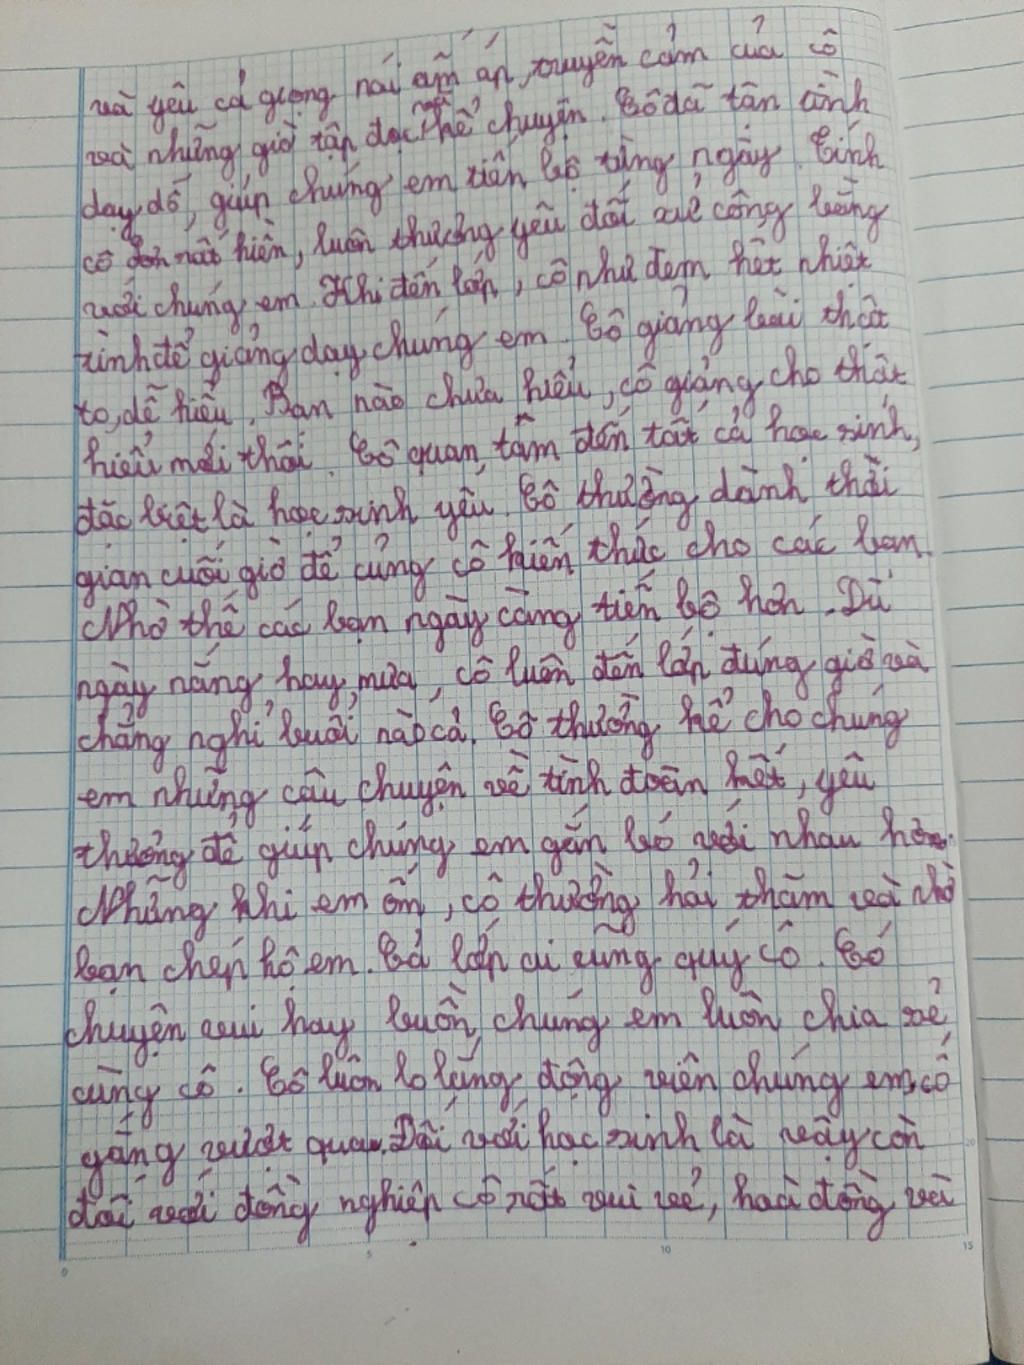 và yêu cả giọng nói ấm áp, truyền cảm của cô
và những giờ tập đọc, kể chuyện. Cô đã tận tình
dạy dỗ, giúp chúng em tiến bộ từng ngày. Tính
cô rất hiền, luôn thương yêu đối xử công bằng
với chúng em. Khi đến lớp, cô như đem hết nhiệt
tình để giảng dạy chúng em. Cô giảng bài thật
to, dễ hiểu. Bạn nào chưa hiểu, cô giảng cho thật
hiểu mới thôi. Cô quan tâm đến tất cả học sinh,
đặc biệt là học sinh yếu. Cô thường dành thời
gian cuối giờ để củng cố kiến thức cho các bạn.
Nhờ thế các bạn ngày càng tiến bộ hơn. Dù
ngày nắng hay mưa, cô luôn đến lớp đúng giờ và
chẳng nghỉ buổi nào cả. Cô thường kể cho chúng
em những câu chuyện về tình đoàn kết, yêu
thương để giúp chúng em gắn bó với nhau hơn.
Những khi em ốm, cô thường hỏi thăm và nhờ
bạn chép hộ em. Cả lớp ai cũng quý cô. Có
chuyện vui hay buồn, chúng em luôn chia sẻ
cùng cô. Cô luôn lo lắng động viên chúng em cố
gắng vượt qua. Đối với học sinh là vậy còn
đối với đồng nghiệp cô rất vui vẻ, hoà đồng và
0 5 10 15
20